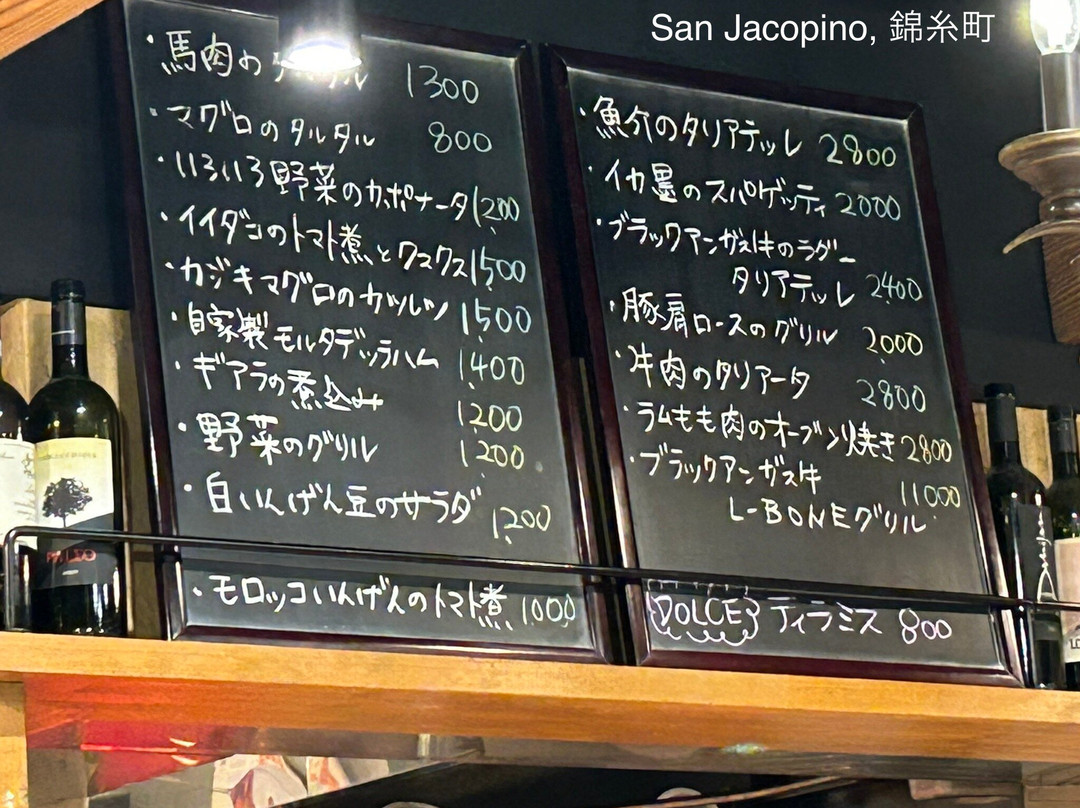 San Jacopino, 錦糸町
・馬肉の
1300
・マグロのタルタル 800
・いろいろ野菜のカポナータ 1,200
・イイダコのトマト煮とクスクス 1,500
・カジキマグロのカツレツ 1,500
・自家製モルタデッラハム 1,400
・ギアラの煮込み 1200
・野菜のグリル 1,200
・白いんげん豆のサラダ 1,200
・モロッコいんげんのトマト煮 1,000
・魚介のタリアテッレ 2800
・イカ墨のスパゲッティ 2000
・ブラックアンガス牛のラグー
タリアテッレ 2400
・豚肩ロースのグリル 2,000
・牛肉のタリアータ 2800
・ラムもも肉のオーブン焼き 2800
・ブラックアンガス牛
L-BONEグリル 11000
DOLCE ティラミス 800